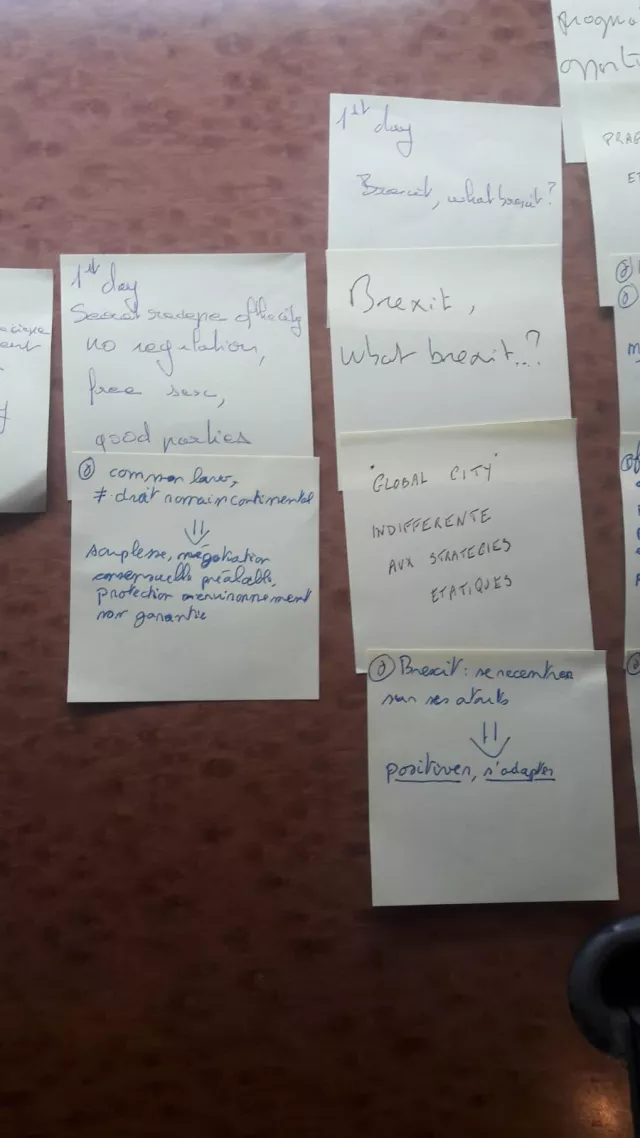 1st day
Secret recipe of the city
no regulation,
free sex,
good parties
common law,
≠ droit romain continental
souplesse, négociation
consensuelle préalable,
protection environnement
non garantie
1st day
Brexit, what brexit?
Brexit,
what brexit..?
"GLOBAL CITY"
INDIFFERENTE
AUX STRATEGIES
ETATIQUES
Brexit : se recentrer
sur ses atouts
positiver, s'adapter